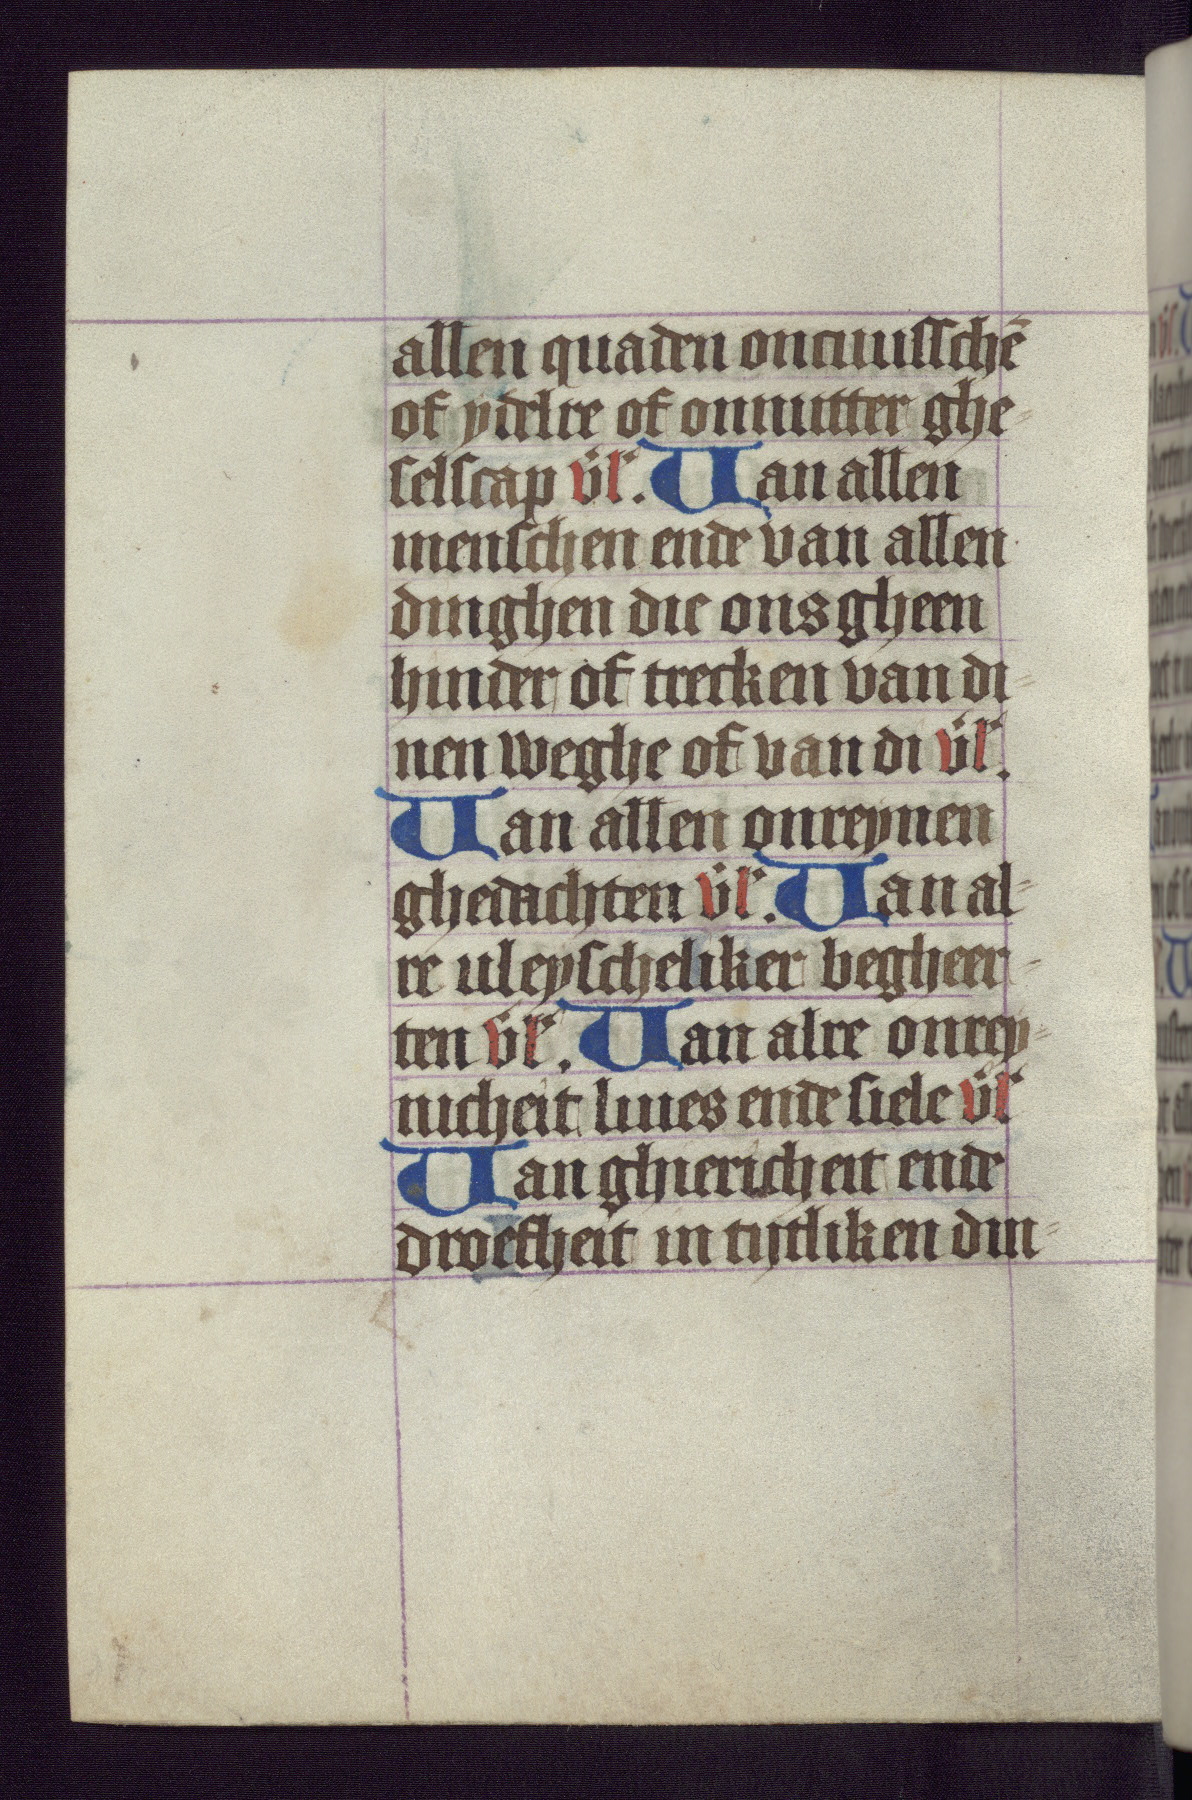 allen quaden oncuusschē
of ydelre of onnutter ghe-
selscap vl'. Van allen
menschen ende van allen
dinghen die ons gheen
hinder of trecken van di-
nen weghe of van di vl'.
Van allen onreynen
ghedachten vl'. Van al-
re vleyscheliker begheer-
ten vl'. Van alre onrey-
nicheit liues ende siele vl'
Van ghiericheit ende
droefheit in tijtliken din-